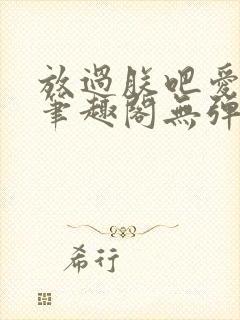 放過朕吧愛
筆趣閣無彈
希行